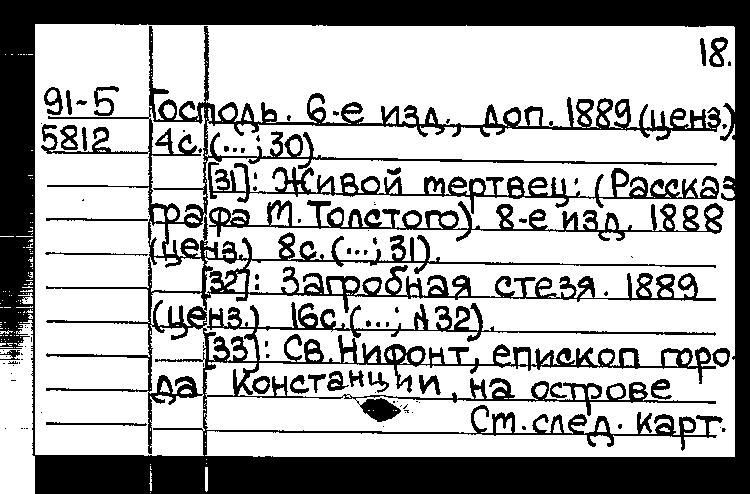 18.
91-5 Господь. 6-е изд., доп. 1889 (ценз.)
5812 4с. (...; 30)
[31]: Живой мертвец: (Рассказ
графа т. Толстого). 8-е изд. 1888
(ценз.) 8с. (...; 31).
[32]: Загробная стезя. 1889
(ценз.) 16с. (...; №32).
[33]: Св. Нифонт, епископ горо-
да Констанции, на острове
Ст. след. карт.